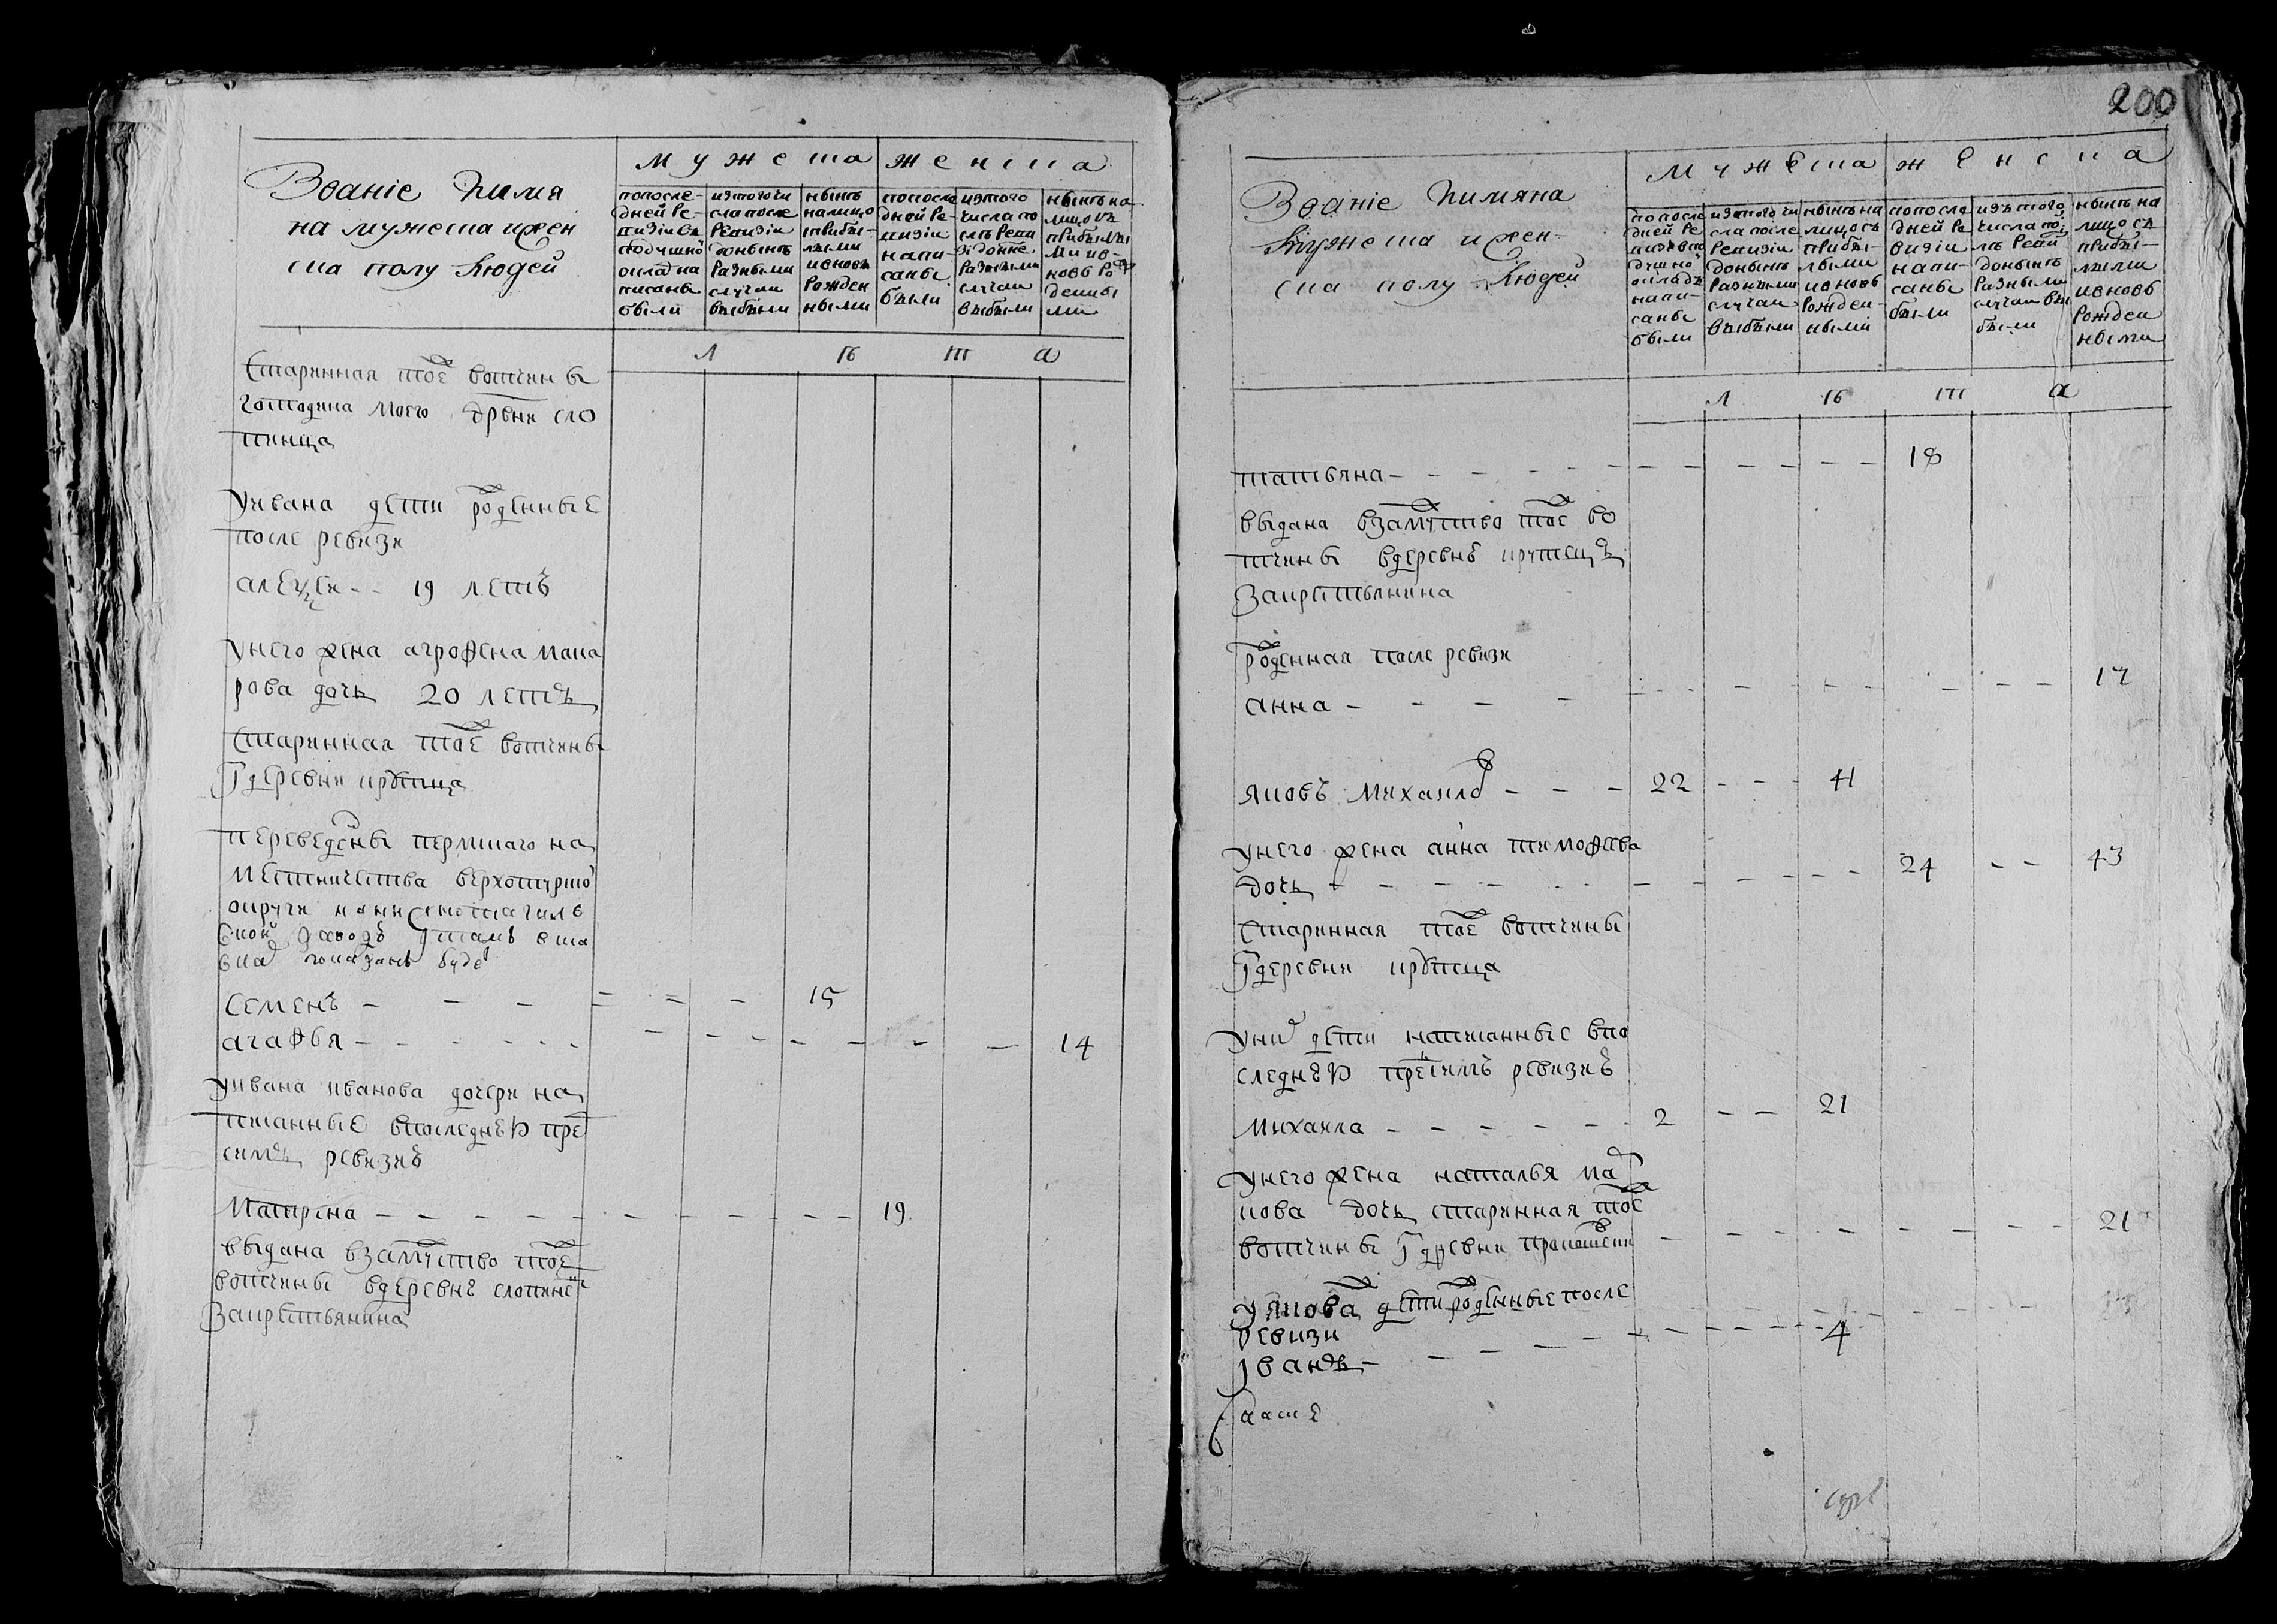 Звание и имя
на мужеска и жен
ска полу людей
мужеска
женска
по после-
дней ре-
визии въ
подушной
окладъ на
писаны
были
изтого чи
сла после
ревизии
донынѣ
разными
случаи
выбыли
нынѣ
налицо
сприбы-
лыми
ивновь
рожден
ными
по после
дней ре-
визии
напи-
саны
были
изтого
числа по
слѣ реви
зіи донынѣ
разными
случаи
выбыли
нынѣ на
лицо съ
прибылы
ми ив-
новь ро
денны
ми
л ѣ т а
старинная тоѣ вотчины
господина моего дрвни сло
пинца
уивана дети роденные
после ревизи
алеѯеи -- 19 летъ
унего жена агрофена мака
рова дочь 20 летъ
старинная тоѣ вотчины
деревни крутца
переведены пермскаго на
местничества верхотурской
округи
показанъ буде
семенъ - - - 15
агафья - - - 14
уивана иванова дочери на
писанные впоследнѣй пре
симъ ревизиѣ
матрена - - - 19
выдана взамуство тоѣ
вотчины вдеревнѣ слопинс
закрестьянина
200
Звание и имяна
мужеска и жен-
ска полу людей
мужеска
женска
по после
дней ре
визии впо
душной
окладъ
напи-
саны
были
изтого чи
сла после
ревизии
донынѣ
разными
случаи
выбыли
нынѣ на
лицо съ
прибы-
лыми
ивновь
рожден-
ными
по после
дней ре
визии
напи-
саны
были
изъ того
числа по
слѣ реви
донынѣ
разными
случаи вы
были
нынѣ на
лицо съ
прибы-
лыми
ивновь
рожден
ными
л ѣ т а
татьяна - - - 18
выдана взамуство тоѣ во
тчины вдеревнѣ крутецъ
закрестьянина
роденная после ревизи
анна - - - 17
яковъ михаилов - - - 22 - - 41
унего жена анна тимофеева
дочь - - - 24 - - 43
старинная тоѣ вотчины
деревни крутца
уних дети написанные впо
следнѣй пресимъ ревизиѣ
михаила - - - 2 - - 21
унего жена наталья мар
кова дочь старинная тоѣ
вотчины деревни - - - 21
уякова дети роденные после
ревизи
иванъ - - - 4